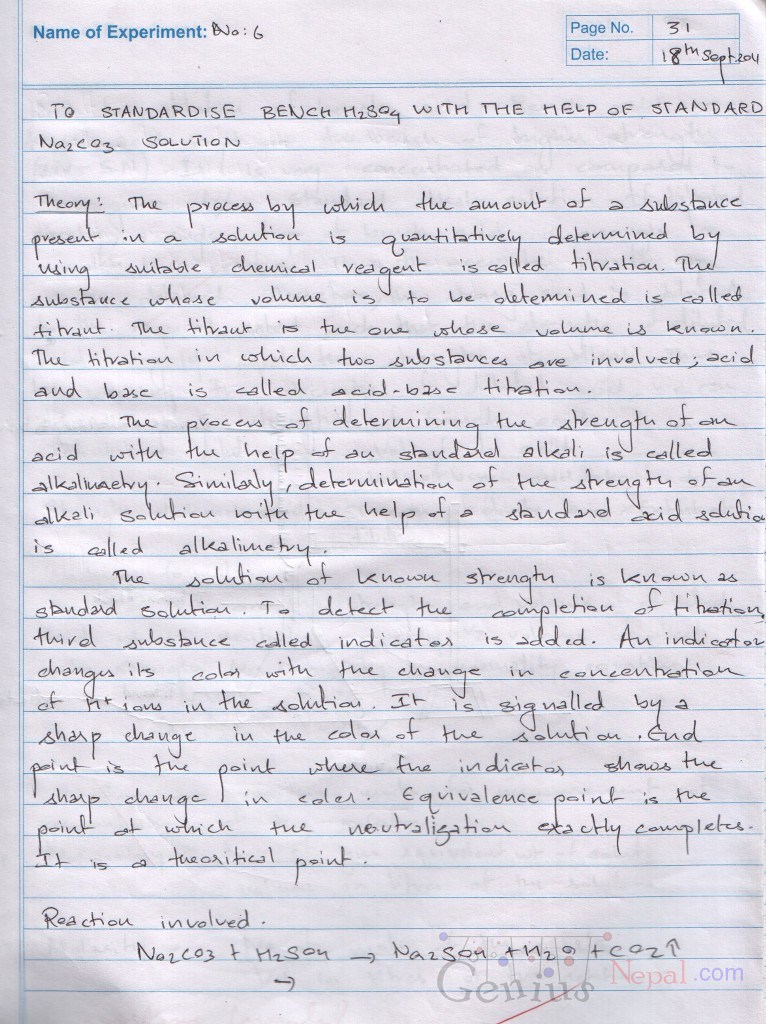 Name of Experiment: No: 6
Page No. 31
Date: 18th Sept. 2011
TO STANDARDISE BENCH H2SO4 WITH THE HELP OF STANDARD
Na2CO3 SOLUTION
Theory: The process by which the amount of a substance
present in a solution is quantitatively determined by
using suitable chemical reagent is called titration. The
substance whose volume is to be determined is called
titrant. The titrant is the one whose volume is known.
The titration in which two substances are involved; acid
and base is called acid-base titration.
The process of determining the strength of an
acid with the help of an standard alkali is called
alkalimetry. Similarly, determination of the strength of an
alkali solution with the help of a standard acid solutio
is called alkalimetry.
The solution of known strength is known as
standard solution. To detect the completion of titration,
third substance called indicator is added. An indicator
changes its color with the change in concentration
of H+ ions in the solution. It is signalled by a
sharp change in the color of the solution. End
point is the point where the indicator shows the
sharp change in color. Equivalence point is the
point at which the neutralization exactly completes.
It is a theoritical point.
Reaction involved.
Na2CO3 + H2SO4 → Na2SO4 + H2O + CO2↑
→
Genius Nepal.com